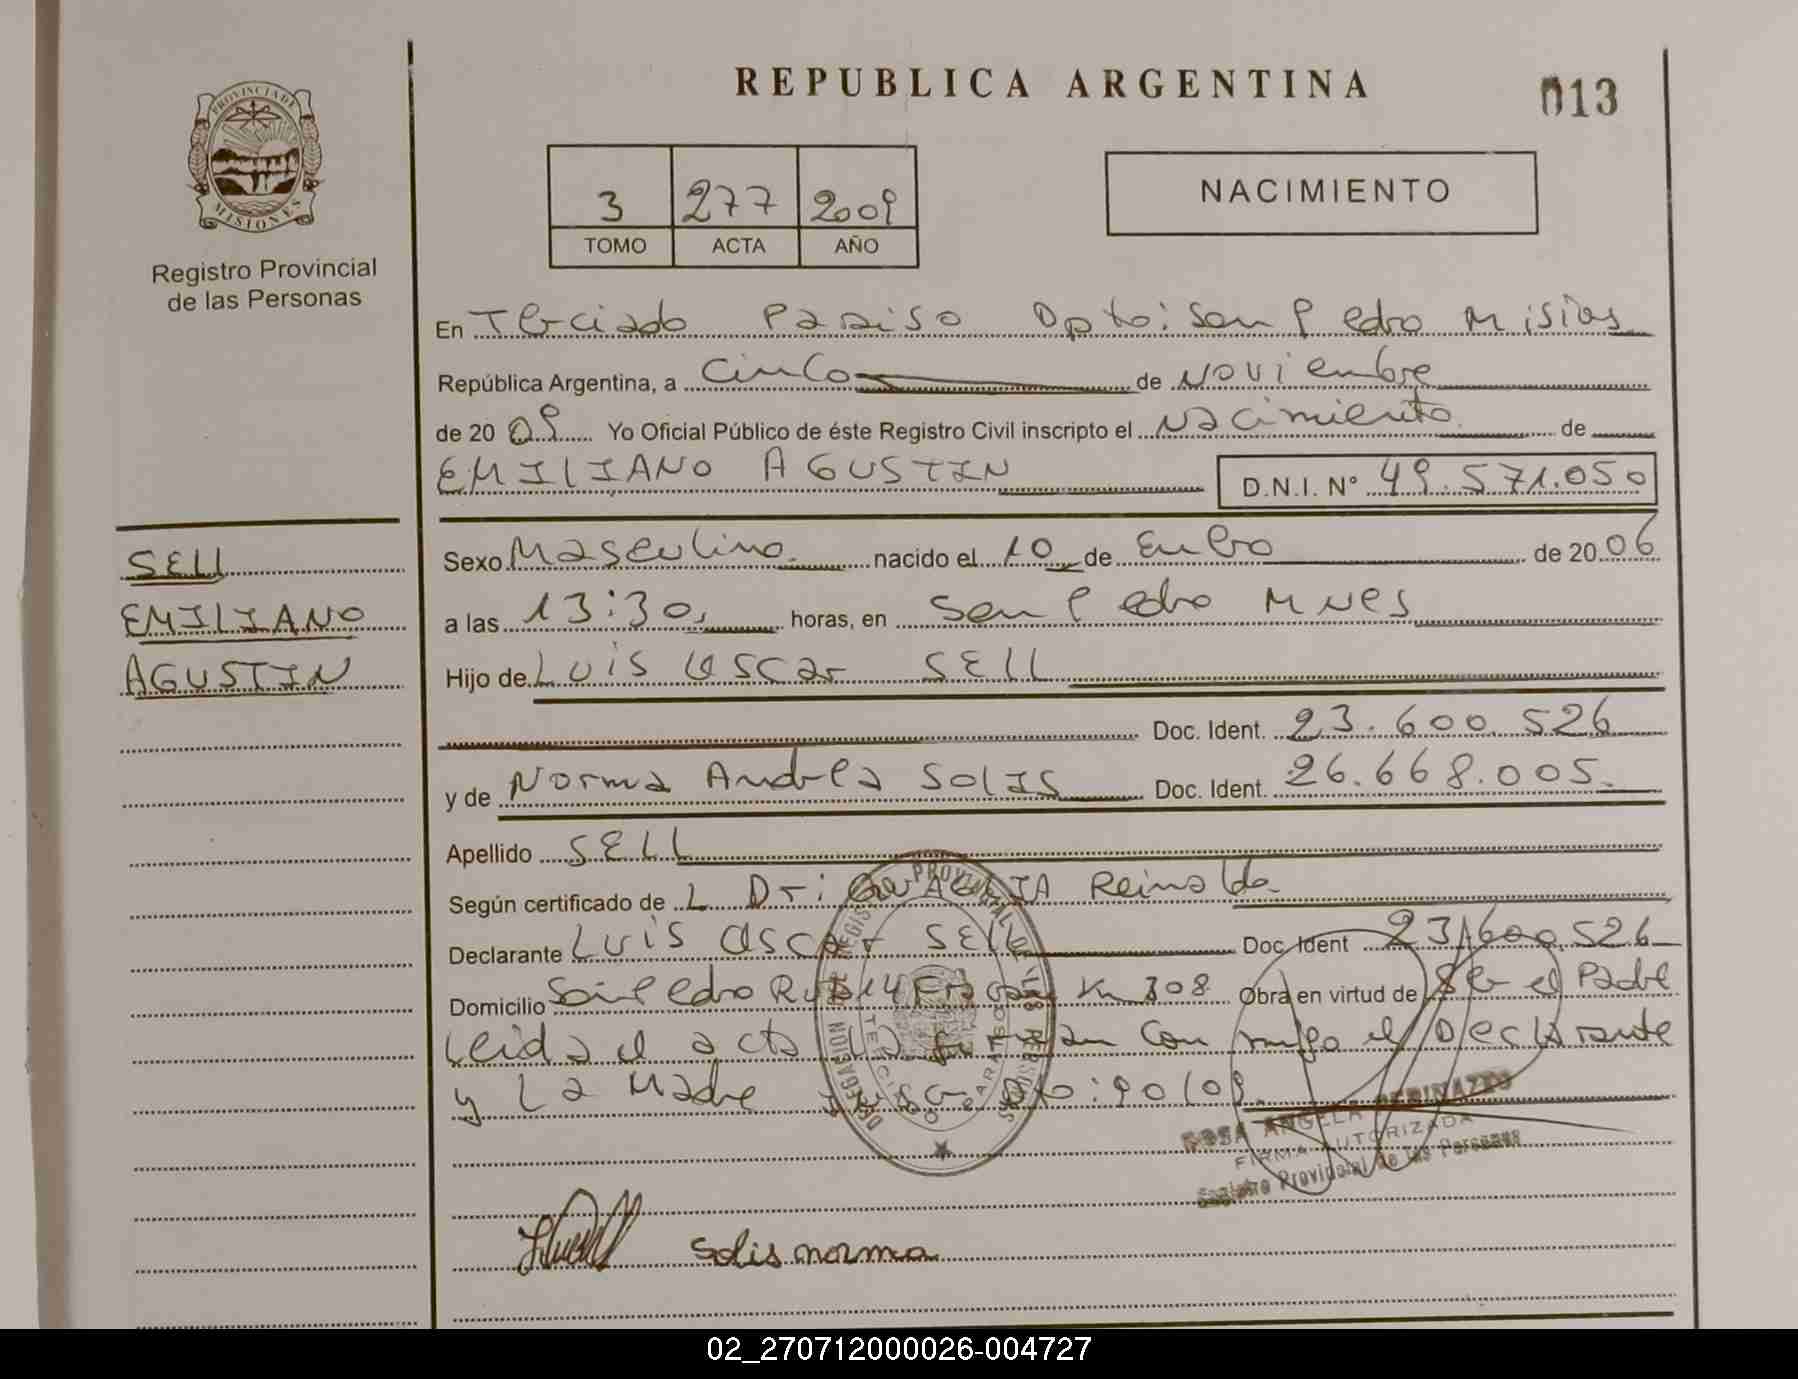 REPUBLICA ARGENTINA
013
PROVINCIA DE
MISIONES
Registro Provincial
de las Personas
3 277 2009
TOMO ACTA AÑO
NACIMIENTO
En Terciado Paraiso Dpto: San Pedro Misiones
República Argentina, a Cinco de Noviembre
de 20 09 Yo Oficial Público de éste Registro Civil inscripto el Nacimiento de
EMILIANO AGUSTIN D.N.I. N° 49.571.050
SELL
EMILIANO
AGUSTIN
Sexo Masculino nacido el 10 de Enero de 20 06
a las 13:30 horas, en San Pedro Mnes
Hijo de Luis Oscar SELL
Doc. Ident. 23.600.526
y de Norma Andrea SOLIS Doc. Ident. 26.668.005.
Apellido SELL
Según certificado de Reinaldo
Declarante Luis Oscar SELL Doc. Ident 23.600.526
Domicilio San Pedro Ruta 14 Km 308 Obra en virtud de Ser el Padre
Leida el acta La firman Con migo el Declarante
y La Madre 90/09.
ROSA ANGELA
FIRMA AUTORIZADA
Registro Provincial de las Personas
Solis norma
02_270712000026-004727